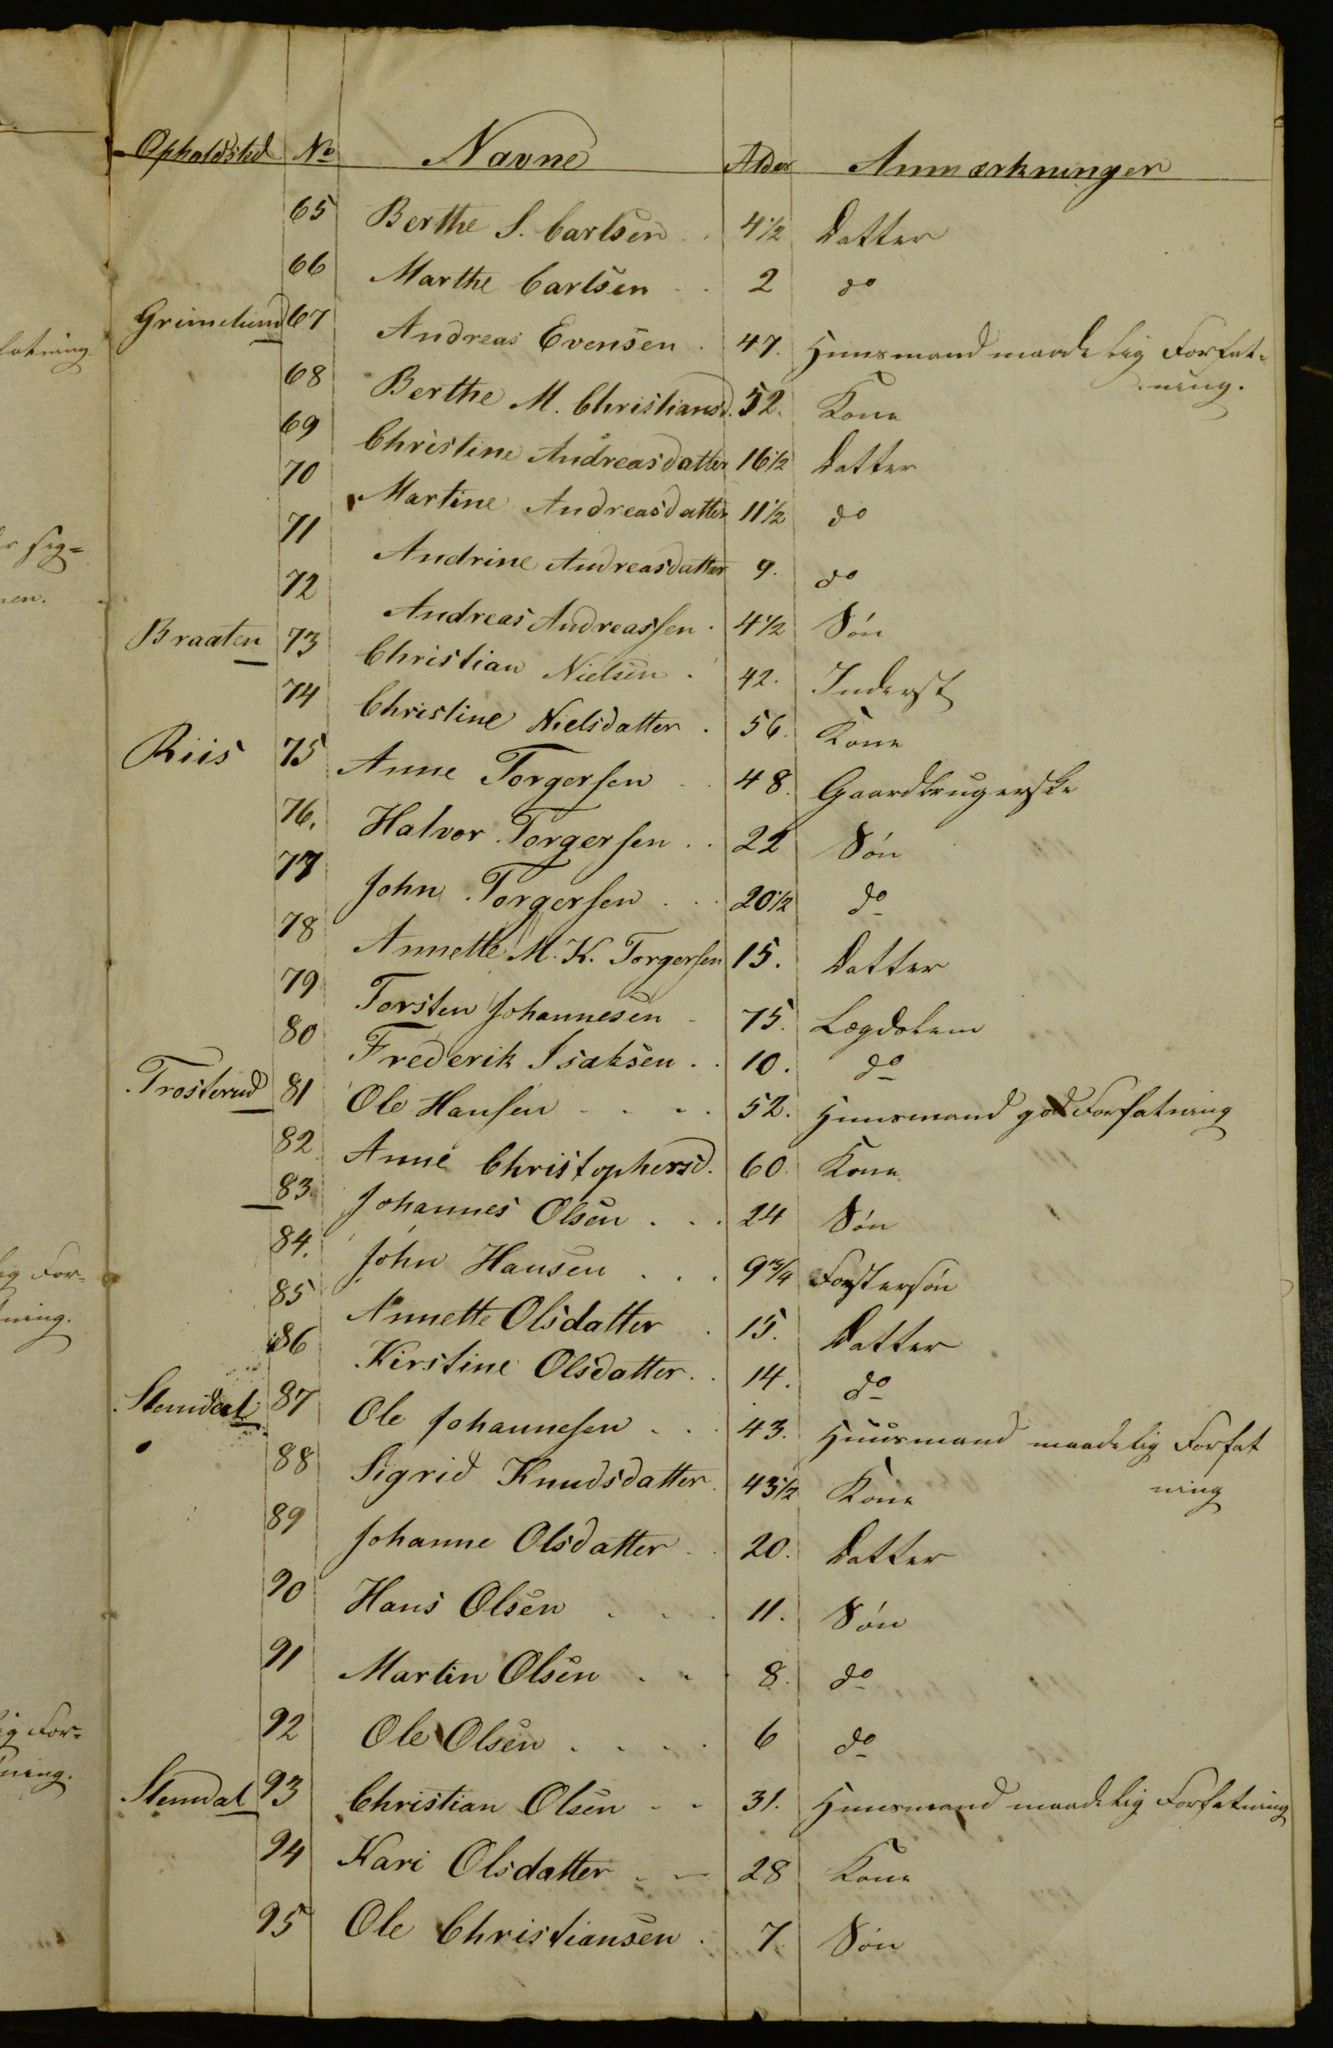 Opholdsted No Navne Alder Anmærkninger
65 Berthe S. Carlsen . . 4 1/2 Datter
66 Marthe Carlsen . . 2 do
Grimelund 67 Andreas Evensen . 47. Huusmand maadelig Forfat-
ning.
68 Berthe M. Christiansd. 52. Kone
69 Christine Andreasdatter 16 1/2 Datter
70 Martine Andreasdatter 11 1/2 do
71 Andrine Andreasdatter 9. do
72 Andreas Andreassen . 4 1/2 Søn
Braaten 73 Christian Nielsen . 42. Inderst
74 Christine Nielsdatter . 56. Kone
Riis 75 Anne Torgersen . . 48. Gaardbrugerske
76. Halvor Torgersen . . 22 Søn
77 John Torgersen . . . 20 1/2 do
78 Annette M. K. Torgersen 15. Datter
79 Torsten Johannesen . 75. Lægdslem
80 Frederik Isaksen . . 10. do
Trosterud 81 Ole Hansen . . . . 52. Huusmand god Forfatning
82 Anne Christophersd. 60. Kone
83. Johannes Olsen . . . 24 Søn
84. John Hansen . . . 9 3/4 Fostersøn
85 Annette Olsdatter . 15. Datter
86 Kirstine Olsdatter . . 14. do
Stemdal 87 Ole Johannesen . . . 43. Huusmand maadelig Forfat
ning
88 Sigrid Knudsdatter . 43 1/2 Kone
89 Johanne Olsdatter . . 20. Datter
90 Hans Olsen . . . 11. Søn
91 Martin Olsen . . . 8. do
92 Ole Olsen . . . . 6 do
Stemdal 93 Christian Olsen . . 31. Huusmand maadelig Forfatning
94 Kari Olsdatter . . 28 Kone
95 Ole Christiansen . 7. Søn